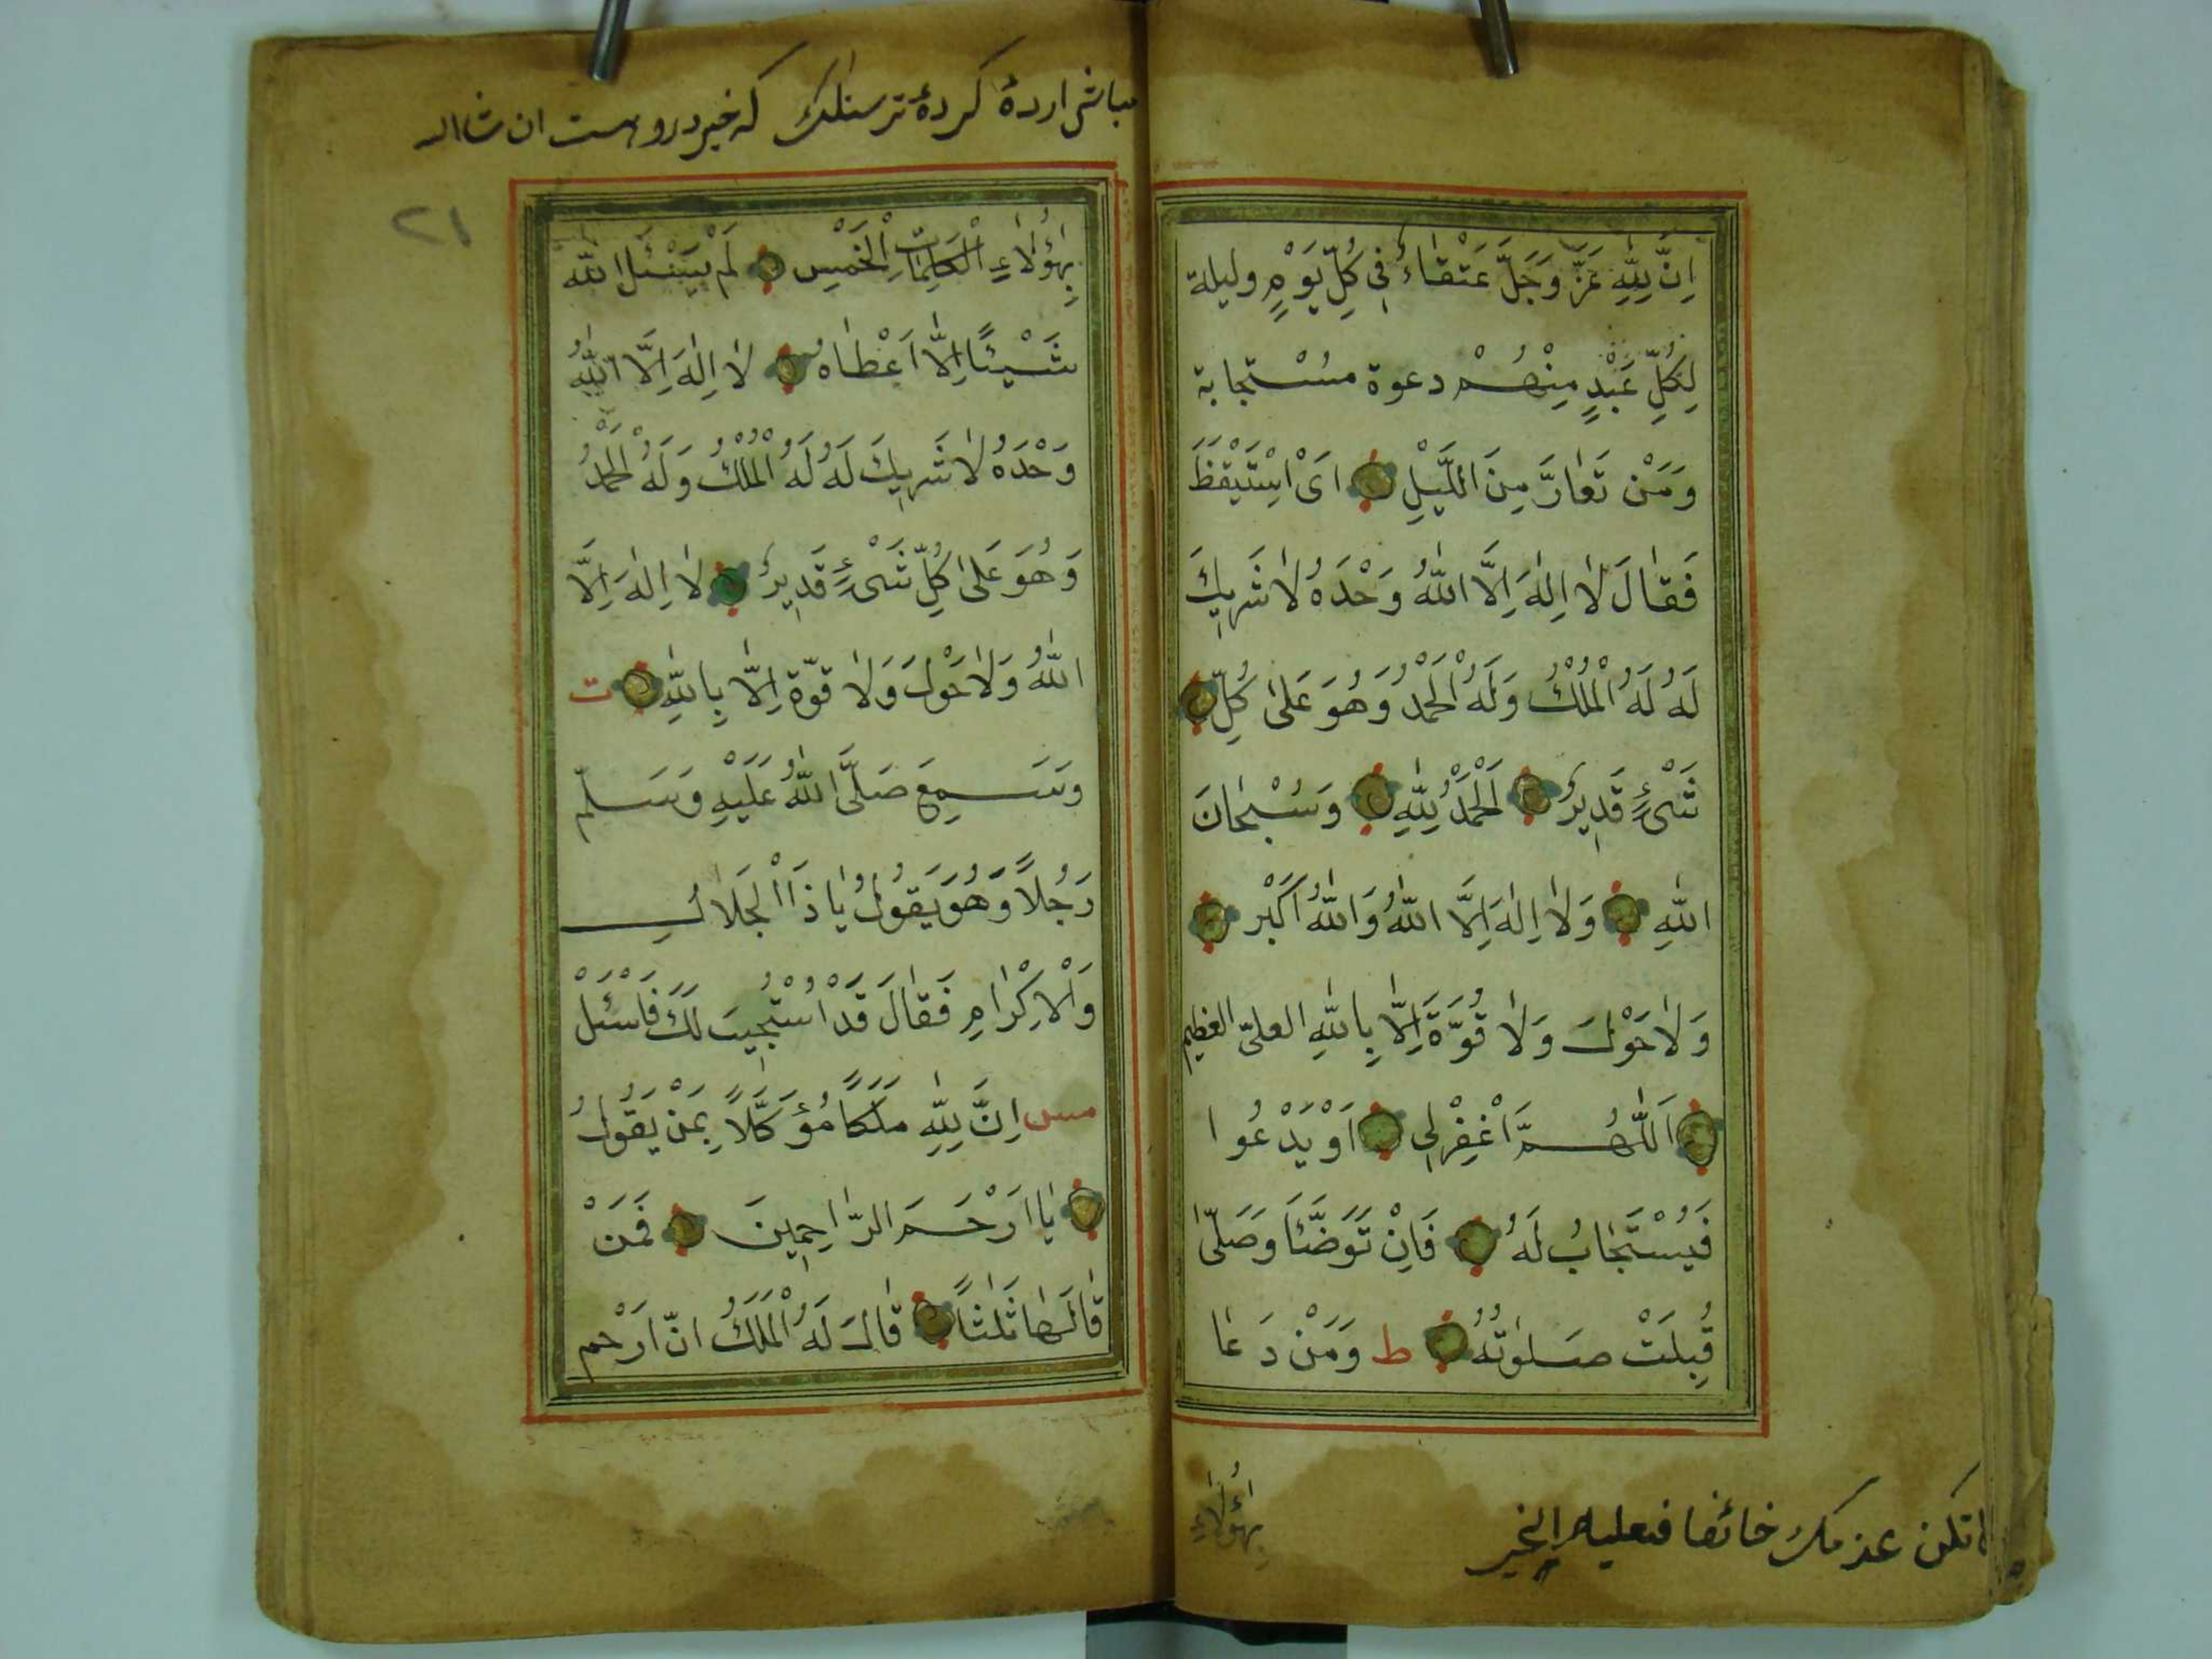 اِنَّ لِلّٰهِ عَزَّ وَجَلَّ عَتْقٰاءُ فِى كُلِّ يَوْمٍ وليلة
لِكُلِّ عَبْدٍ مِنْهُمْ دعوة مسْتجابة
وَمَنْ تَعٰارَّ مِنَ اللَّيْلِ اَىْ اسْتَيْقَظَ
فَقٰالَ لاٰ اِلٰهَ اِلَّا اللّٰهُ وَحْدَهُ لاٰ شَرِيكَ
لَهُ لَهُ الْمُلْكُ وَلَهُ الْحَمْدُ وَهُوَ عَلىٰ كُلِّ
شَىْءٍ قَدِيرٌ اَلْحَمْدُ لِلّٰهِ وَسُبْحٰانَ
اللّٰهِ وَلاٰ اِلٰهَ اِلَّا اللّٰهُ وَاللّٰهُ اَكْبَر
وَلاٰ حَوْلَ وَلاٰ قُوَّةَ اِلَّا بِاللّٰهِ العلىّ العظيم
اَللّٰهُمَّ اغْفِرْلِى اَوْ يَدْعُوا
فَيُسْتَجٰابُ لَهُ فَاِنْ تَوَضَّئَا وَصَلّىٰ
قُبِلَتْ صَلوٰتُهُ ط وَمَنْ دَعٰا
بِهٰؤُلاٰءِ
لا تكن عزمك خائفا فعليه الخير
مباش اردهٔ كردهٔ ترسناك كه خير دروست ان شااله
٢١
بِهٰؤُلاٰءِ الْكَلِمٰاتِ الْخَمْسِ لَمْ يَسْئَلِ اللّٰه
شَيْئًا اِلَّا اَعْطٰاهُ لاٰ اِلٰهَ اِلَّا اللّٰهُ
وَحْدَهُ لاٰ شَرِيكَ لَهُ لَهُ الْمُلْكُ وَلَهُ الْحَمْدُ
وَهُوَ عَلىٰ كُلِّ شَىْءٍ قَدِيرٌ لاٰ اِلٰهَ اِلَّا
اللّٰهُ وَلاٰ حَوْلَ وَلاٰ قوّة اِلَّا بِاللّٰهِ ت
وَسَمِعَ صَلَّى اللّٰهُ عَلَيْهِ وَسَلّم
رَجُلاً وَهُوَ يَقُولُ يٰا ذَا الْجَلاٰلِ
وَالْاِكْرٰامِ فَقٰالَ قَدْ اسْتُجِيبَ لَكَ فَاسْئَلْ
مس اِنَّ لِلّٰهِ مَلَكًا مُؤَكَّلاً بِمَنْ يَقُولُ
يٰا اَرْحَمَ الرّٰاحِمِينَ فَمَنْ
قٰالَهٰا ثَلٰثًا قٰالَ لَهُ الْمَلَكُ انّ اَرْحم